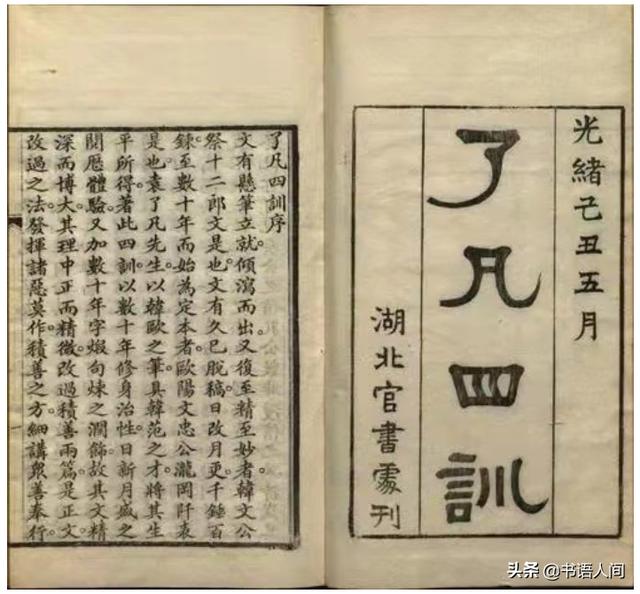 光緒己丑五月
了凡四訓
湖北官書處刊
了凡四訓序
文有懸筆立就。傾瀉而出又復至精至妙者韓文公
祭十二郎文是也。文有久已脫稿日改月更千錘百
鍊至數十年而始為定本者。歐陽文忠公瀧岡阡表
是也。袁了凡先生以韓歐之筆具韓范之才將其生
平所得。著此四訓以數十年修身治性日新月盛之
閱歷體驗又加數十年字煅句煉之潤飾故其文精
深而博大其理中正而精微改過積善兩篇。是正文
改過之法。發揮諸惡莫作。積善之方。細講眾善奉行。
头条 @书语人间